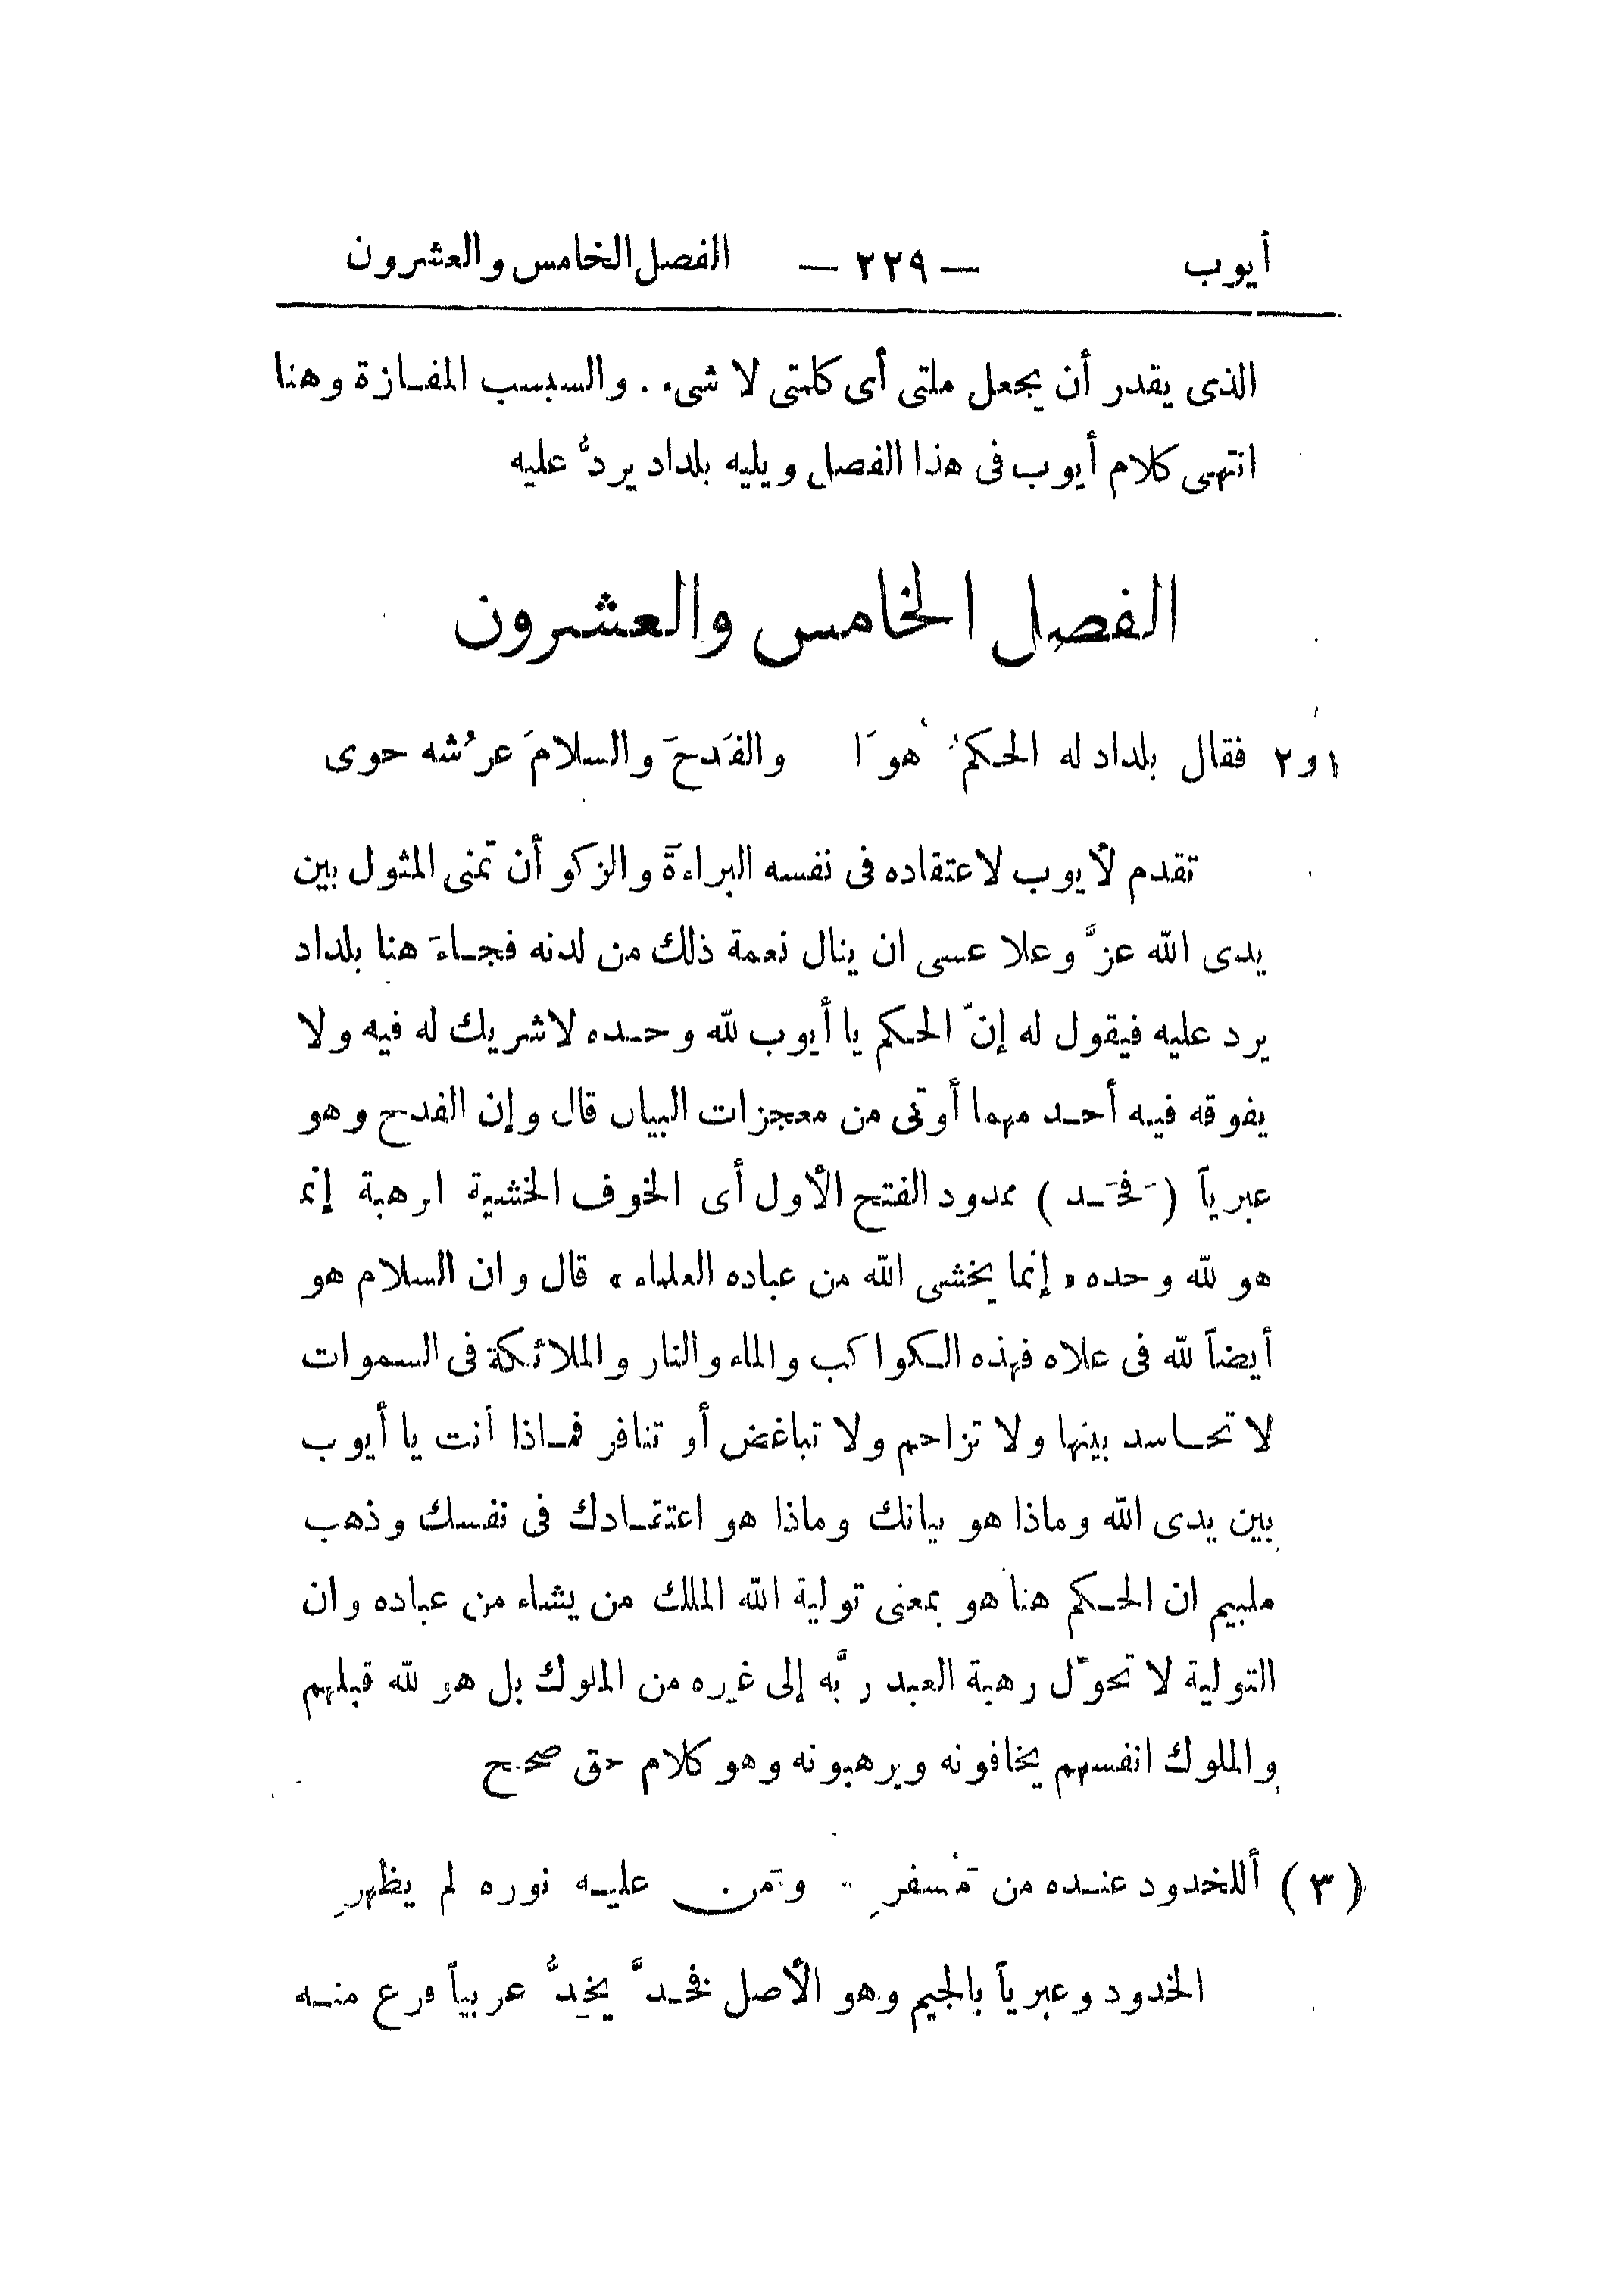 أيوب — ٢٢٩ — الفصل الخامس والعشرون
الذى يقدر أن يجعل ملتى أى كلمتى لا شىء . والسبسب المفازة وهنا
انتهى كلام أيوب فى هذا الفصل ويليه بلداد يردُّ عليه
الفصل الخامس والعشرون
١و٢ فقال بلداد له الحكمُ هوَا والفَدحَ والسلامَ عرْشه حوى
تقدم لأيوب لاعتقاده فى نفسه البراءةَ والزكو أن تمنى المثول بين
يدى الله عزَّ وعلا عسى ان ينال نعمة ذلك من لدنه فجاءَ هنا بلداد
يرد عليه فيقول له إنّ الحكم يا أيوب لله وحده لاشريك له فيه ولا
يفوقه فيه أحد مهما أوتى من معجزات البيان قال وإن الفدح وهو
عبرياً (فَحَد) ممدود الفتح الأول أى الخوف الخشية الرهبة إنما
هو لله وحده «إنما يخشى الله من عباده العلماء» قال وان السلام هو
أيضاً لله فى علاه فهذه الكواكب والماء والنار والملائكة فى السموات
لا تحاسد بينها ولا تزاحم ولا تباغض أو تنافر فماذا أنت يا أيوب
بين يدى الله وماذا هو بيانك وماذا هو اعتقادك فى نفسك وذهب
ملبيم ان الحكم هنا هو بمعنى تولية الله الملك من يشاء من عباده وان
التولية لا تحوّل رهبة العبد ربَّه إلى غيره من الملوك بل هو لله قبلهم
والملوك انفسهم يخافونه ويرهبونه وهو كلام حق صحيح
(٣) أللخدود عنده من مَسْفرِ ومَن عليه نوره لم يظهرِ
الخدود وعبرياً بالجيم وهو الأصل فخدَّ يخِدُّ عربياً فرع منه